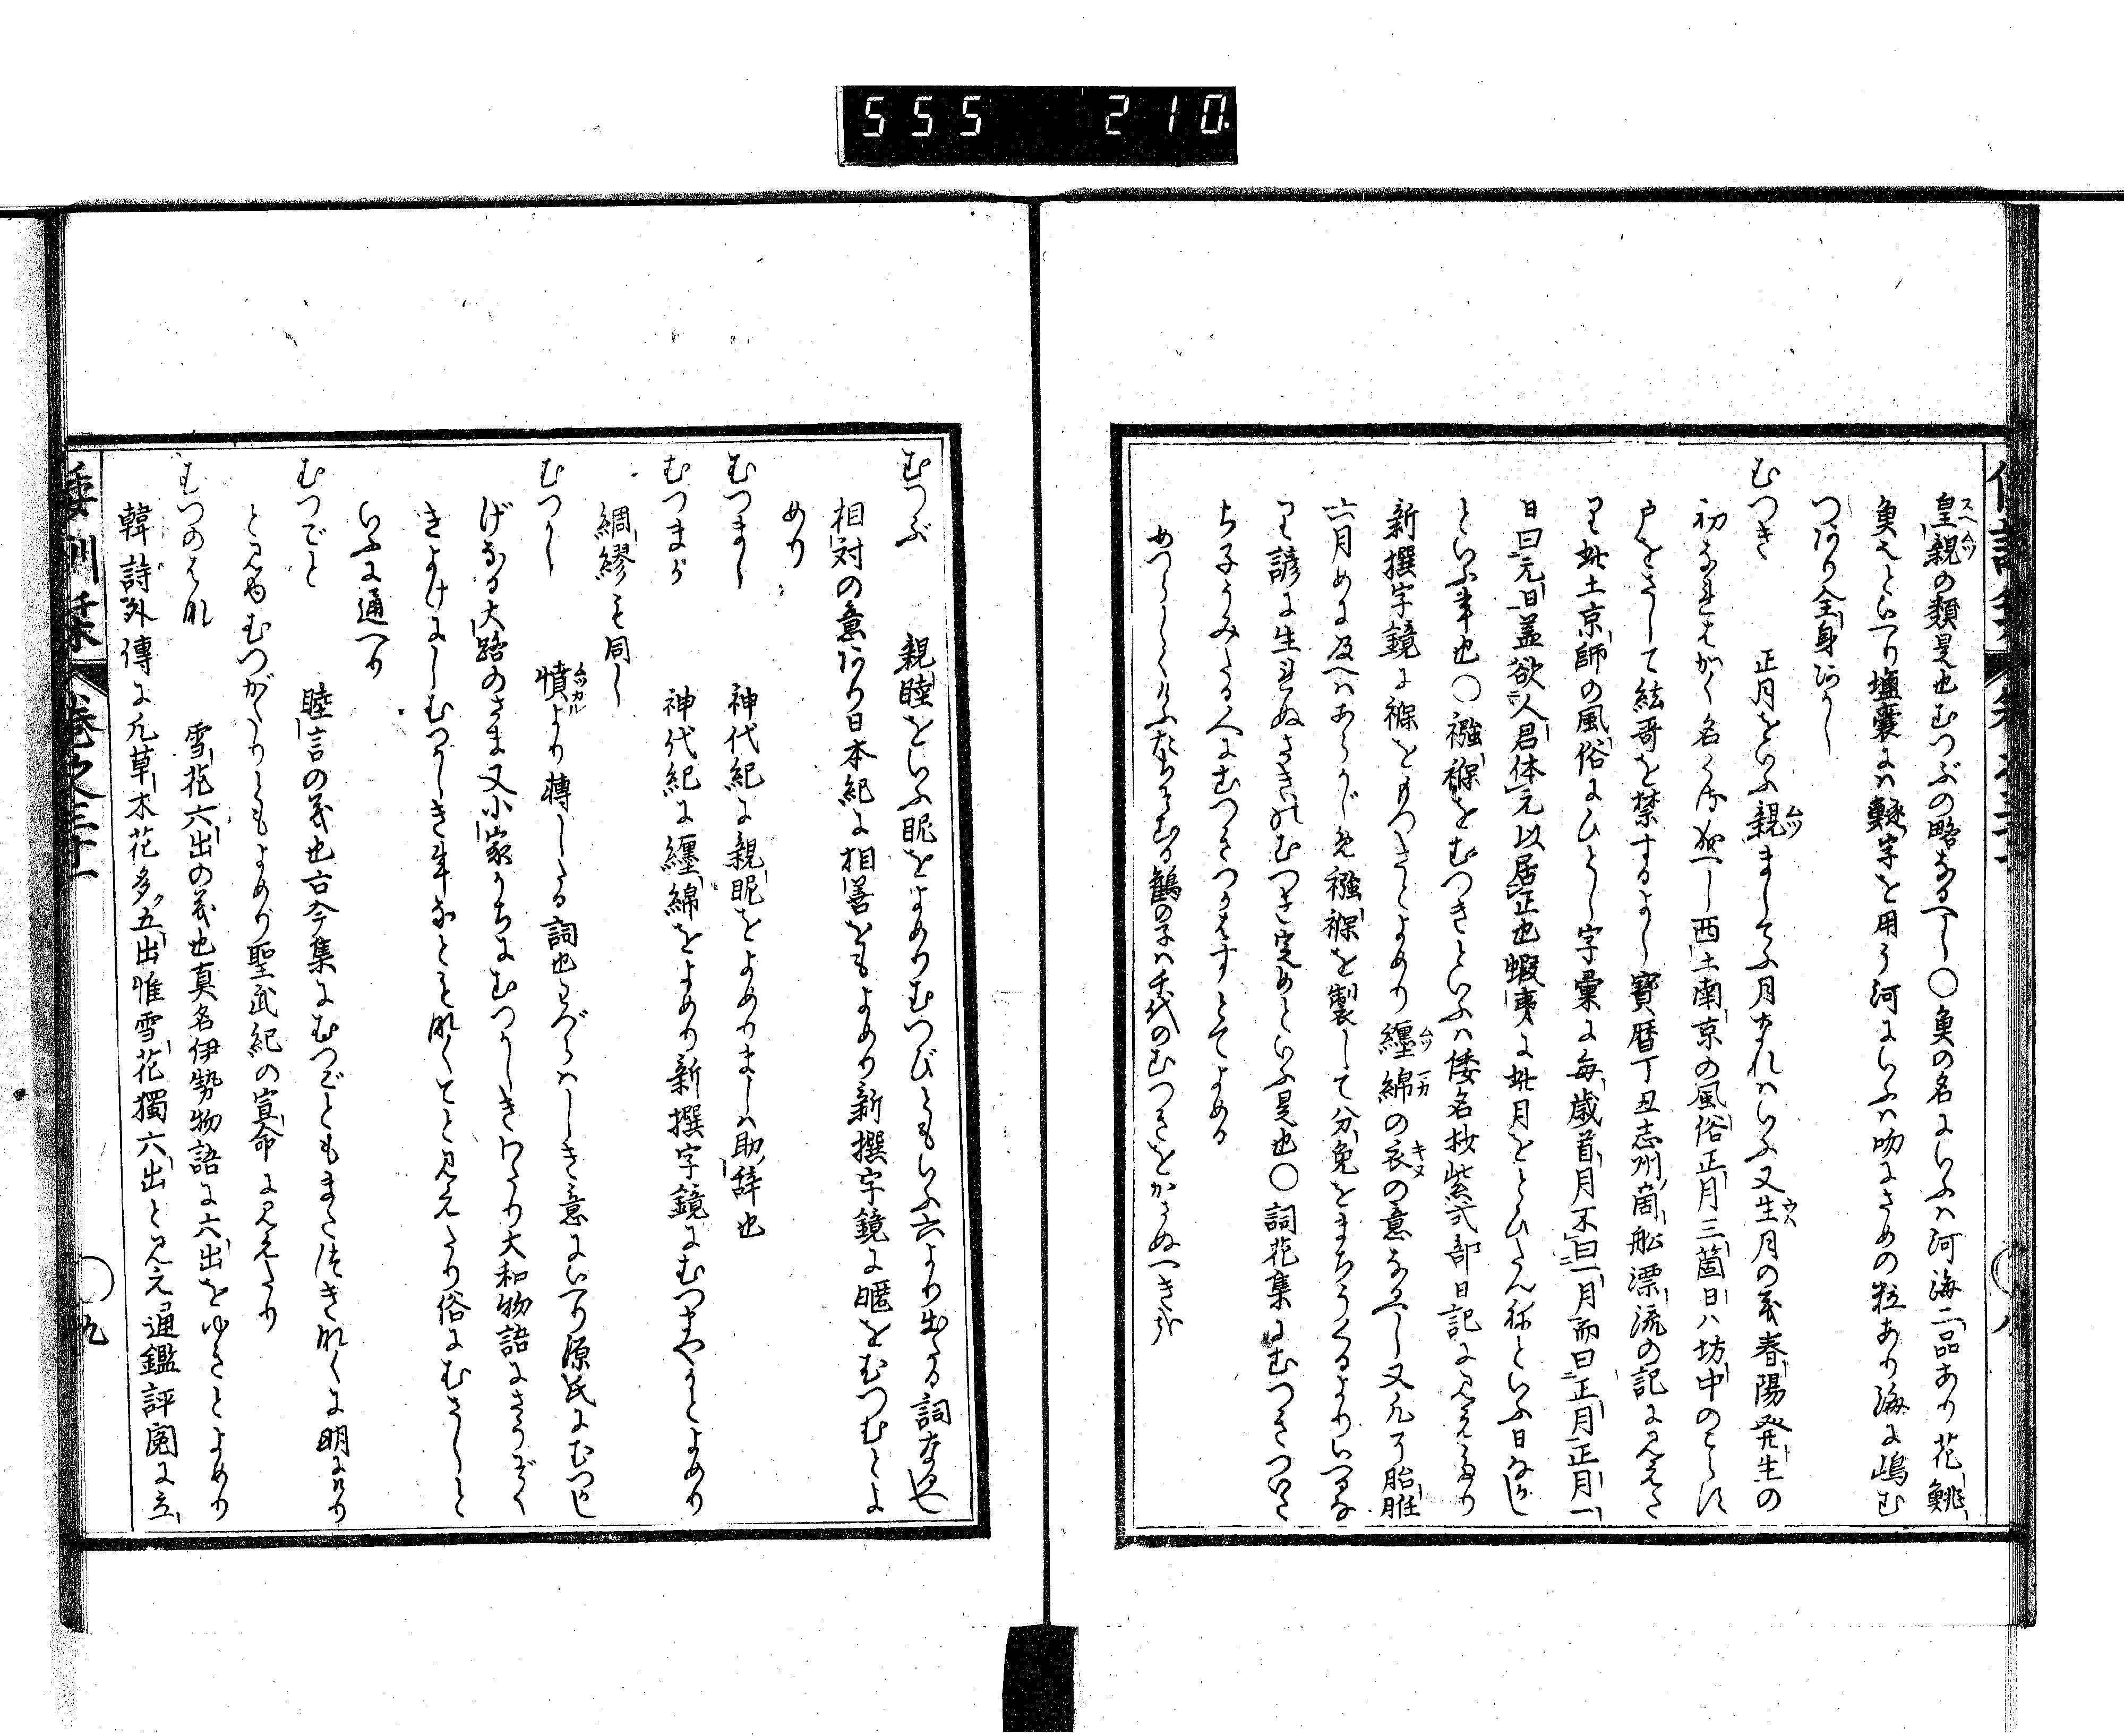 555 210
皇親の類是也むつぶの略なるへし○魚の名にいふハ河海二品あり花鮡
魚也といへり壒囊にハ鯥字を用う河にいふハ吻にさめの粒あり海に嶋む
つあり全身あかし
むつき 正月をいふ親ましてふ月なれハいふ又生月の義春陽発生の
初なれはかく名くる成へし西土南京の風俗正月三箇日ハ坊中のこらす
戸をさして絃哥を禁するよし寳暦丁丑志州商舩漂流の記に見えた
り此土京師の風俗にひとし字彙に毎歳首月不曰一月而曰正月正月一
日曰元日蓋欲人君体元以居正也蝦夷に此月をとひたんねといふ日なかし
といふ事也○襁褓をむつきといふハ倭名抄紫式部日記に見えたり
新撰字鏡に褓をむつきとよめり纏綿の衣の意なるへし又凡予胎胜
六月めに及へハあらかじめ襁褓を製して分免をまちうくるよりいへるな
り諺に生れぬさきのむつき定めといふ是也○詞花集にむつきついた
ち子うみたる人にむつきつかはすとてよめる
めつらしくけふたちそむる鶴の子ハ千代のむつきをかさぬへき哉
むつぶ 親睦をいふ昵をよめりむつびともいふ六より出たる詞なるへし
相対の意あり日本紀に相善をもよめり新撰字鏡に暱をむつむとよ
めり
むつまし 神代紀に親昵をよめりましハ助辞也
むつまか 神代紀に纏綿をよめり新撰字鏡にむつまやかとよめり
綢繆も同し
むつかし 憤より轉したる詞也わづらハしき意にいへり源氏にむつかし
げなる大路のさま又小家かちにむつかしきわたり大和物語にさうぞく
きよけにしむつかしき事なともなくてと見えたり俗にむさしと
いふに通へり
むつごと 睦言の義也古今集にむつごともまたつきなくに明にけり
と見ゆむつがたりともよめり聖武紀の宣命に見えたり
むつのはな 雪花六出の義也真名伊勢物語に六出をゆきとよめり
韓詩外傳に凡草木花多ク五出惟雪花獨六出と見え通鑑評閲に立
倭訓栞 巻之三十一 ○九